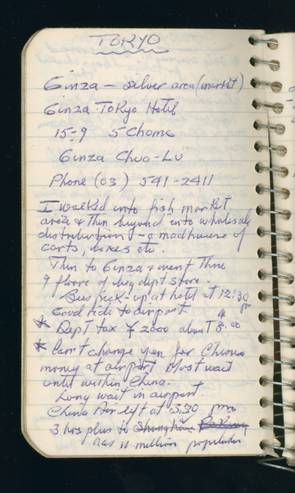 TOKYO
Ginza – silver area (market)
Ginza Tokyo Hotel
15-9 5 Chome
Ginza Chuo-Lu
Phone (03) 541-2411
I walked into fish market
area & then beyond into wholesale
distribution – a madhouse of
carts, boxes etc.
Then to Ginza & went thru
9 floors of big dept store.
Bus pick-up at hotel at 12:30 pm
Good ride to airport
* Dept tax ¥ 2000 about 8.00
* Can't change yen for China
money at airport Must wait
until within China.
Long wait in airport.
China Air left at 3:30 pm
3 hrs plus to Shanghai
has 11 million population